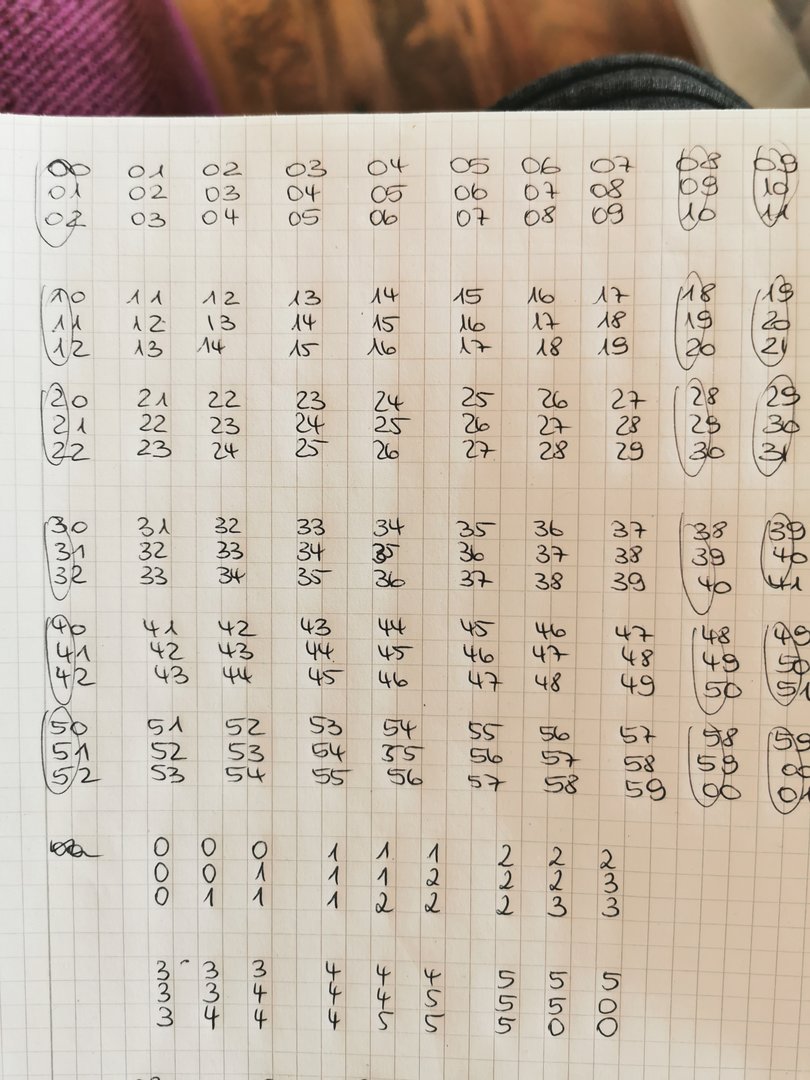 00 01 02 03 04 05 06 07 08 09
01 02 03 04 05 06 07 08 09 10
02 03 04 05 06 07 08 09 10 11
10 11 12 13 14 15 16 17 18 19
11 12 13 14 15 16 17 18 19 20
12 13 14 15 16 17 18 19 20 21
20 21 22 23 24 25 26 27 28 29
21 22 23 24 25 26 27 28 29 30
22 23 24 25 26 27 28 29 30 31
30 31 32 33 34 35 36 37 38 39
31 32 33 34 35 36 37 38 39 40
32 33 34 35 36 37 38 39 40 41
40 41 42 43 44 45 46 47 48 49
41 42 43 44 45 46 47 48 49 50
42 43 44 45 46 47 48 49 50 51
50 51 52 53 54 55 56 57 58 59
51 52 53 54 35 56 57 58 59 00
52 53 54 55 56 57 58 59 00 01
0 0 0 1 1 1 2 2 2
0 0 1 1 1 2 2 2 3
0 1 1 1 2 2 2 3 3
3 3 3 4 4 4 5 5 5
3 3 4 4 4 5 5 5 0
3 4 4 4 5 5 5 0 0